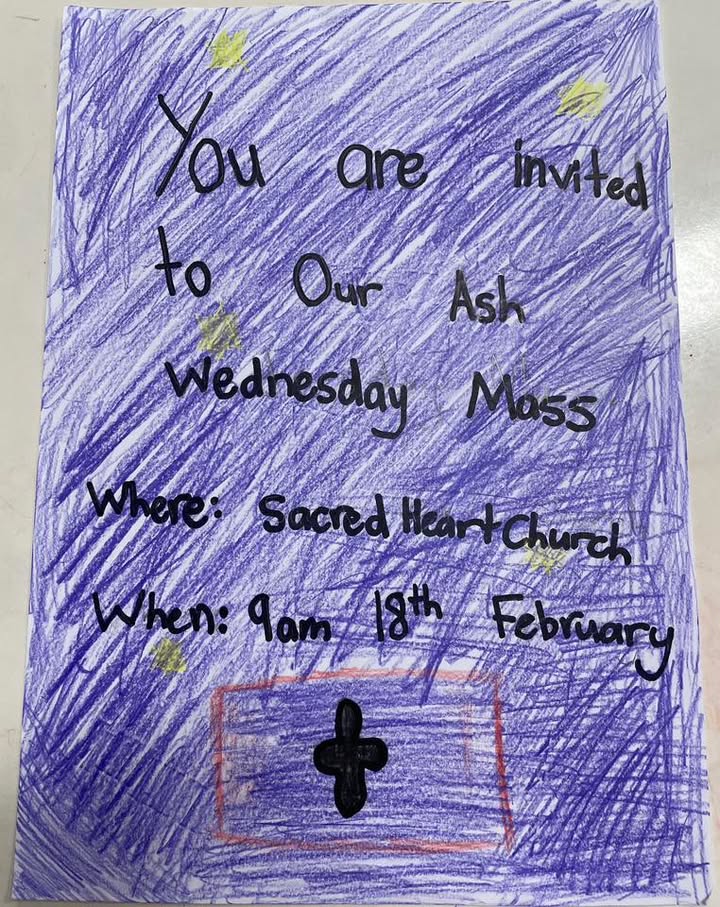 You are invited
to Our Ash
Wednesday Mass
Where: Sacred Heart Church
When: 9am 18th February